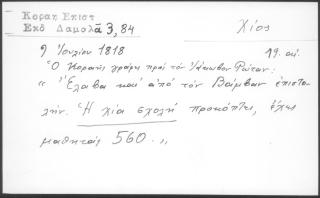 Κοραη Επιστ
Εκδ Δαμαλά 3,84
Χίος
9 Ιουλίου 1818
19. αι.
Ὁ Κοραῆς γράφει πρός τόν Ἰάκωβον Ρώταν:
« Ἔλαβα καί ἀπό τόν Βάμβαν ἐπιστο-
λήν. Ἡ χία σχολή προκόπτει, ἔχει
μαθητάς 560. "